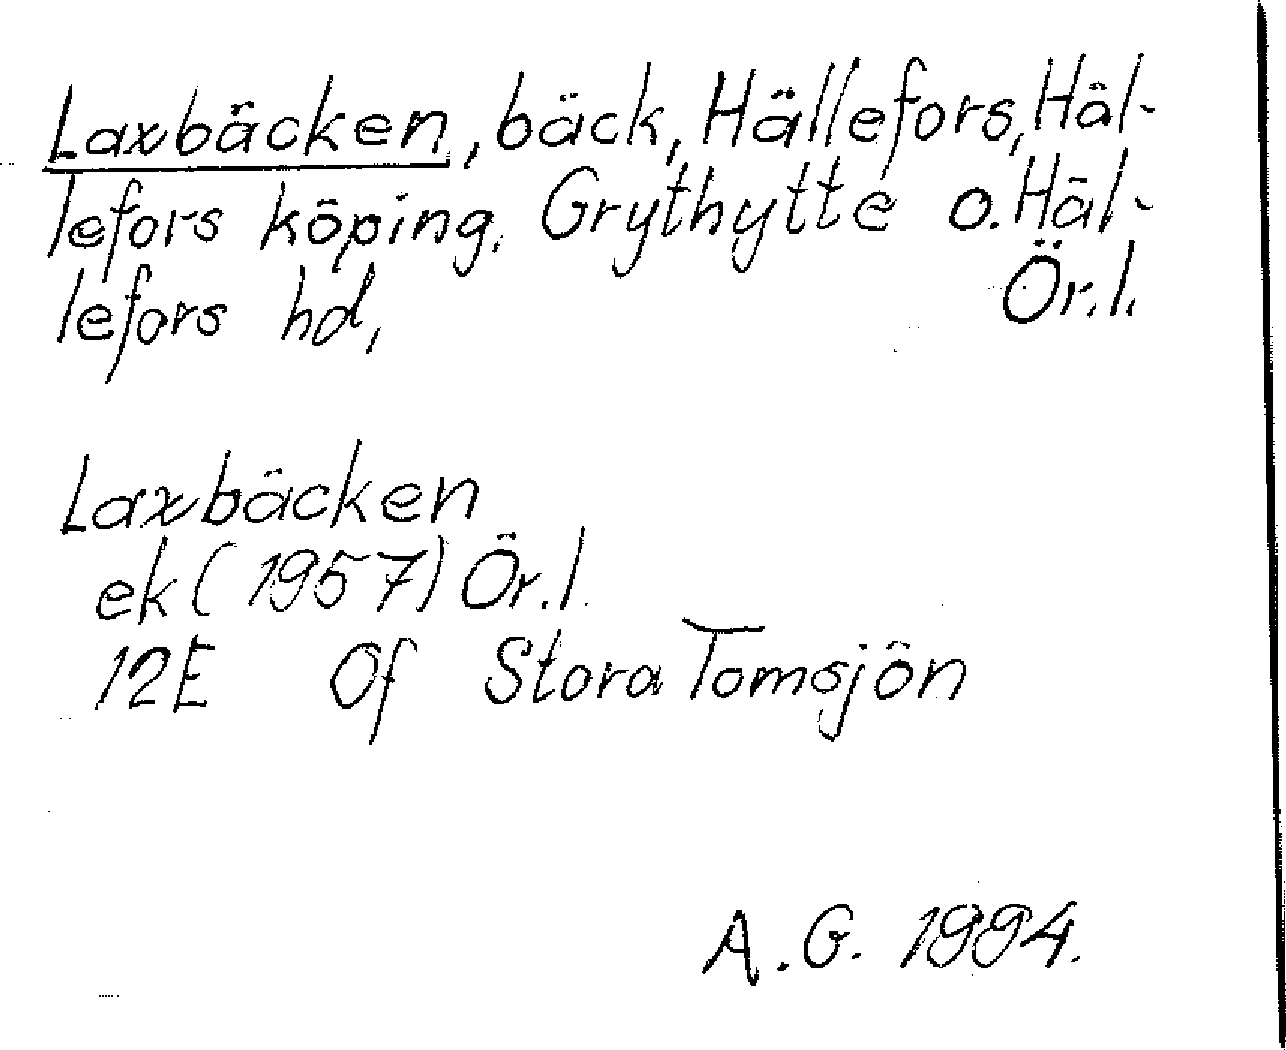 Laxbäcken, bäck, Hällefors, Häl-
lefors köping, Grythytte o. Häl-
lefors hd, Ör.l.
Laxbäcken
ek (1957) Ör.l.
12E Of Stora Tomsjön
A.G. 1994.